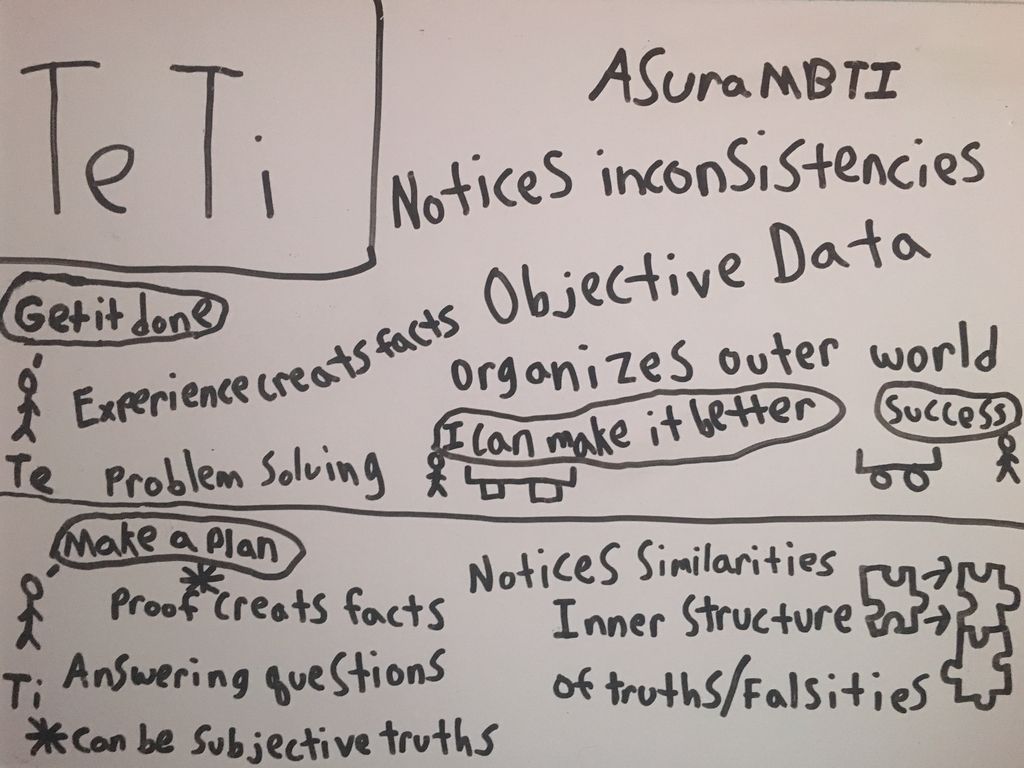 Te Ti
ASuraMBTI
Notices inconsistencies
Objective Data
organizes outer world
Get it done
Experience creats facts
I can make it better
Success
Te Problem Solving
Make a plan
*
Proof creats facts
Notices Similarities
Inner Structure
of truths/Falsities
Ti Answering questions
*Can be Subjective truths